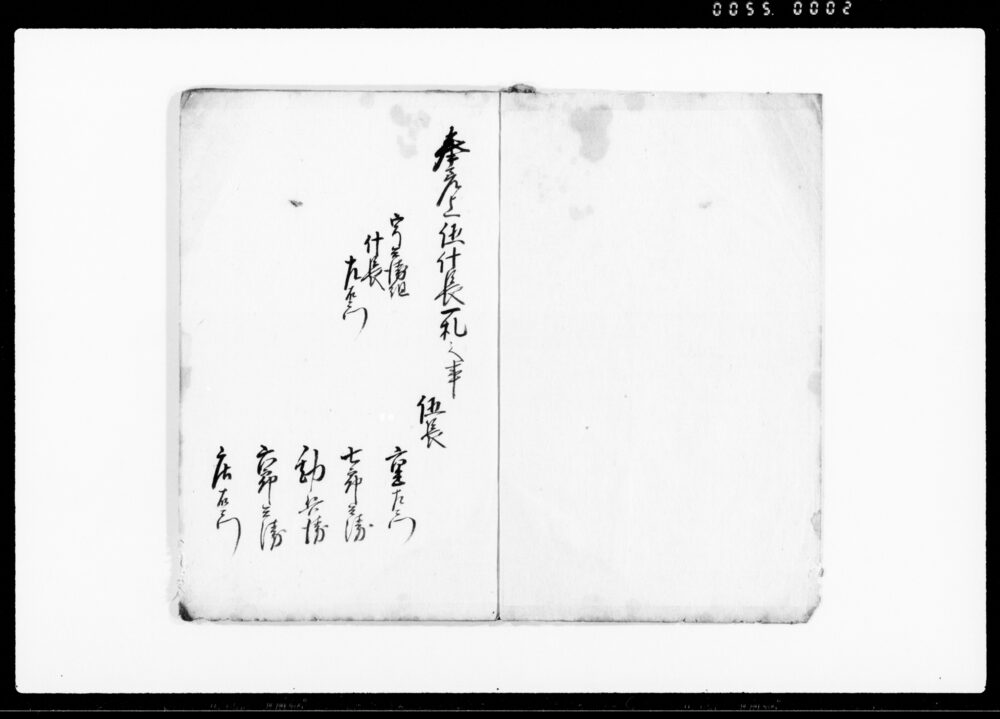 0055. 0002
奉差上伍什長一札之事
宇兵衛組
什長
左衛門
伍長
重左衛門
七郎兵衛
勘兵衛
六郎兵衛
店右衛門